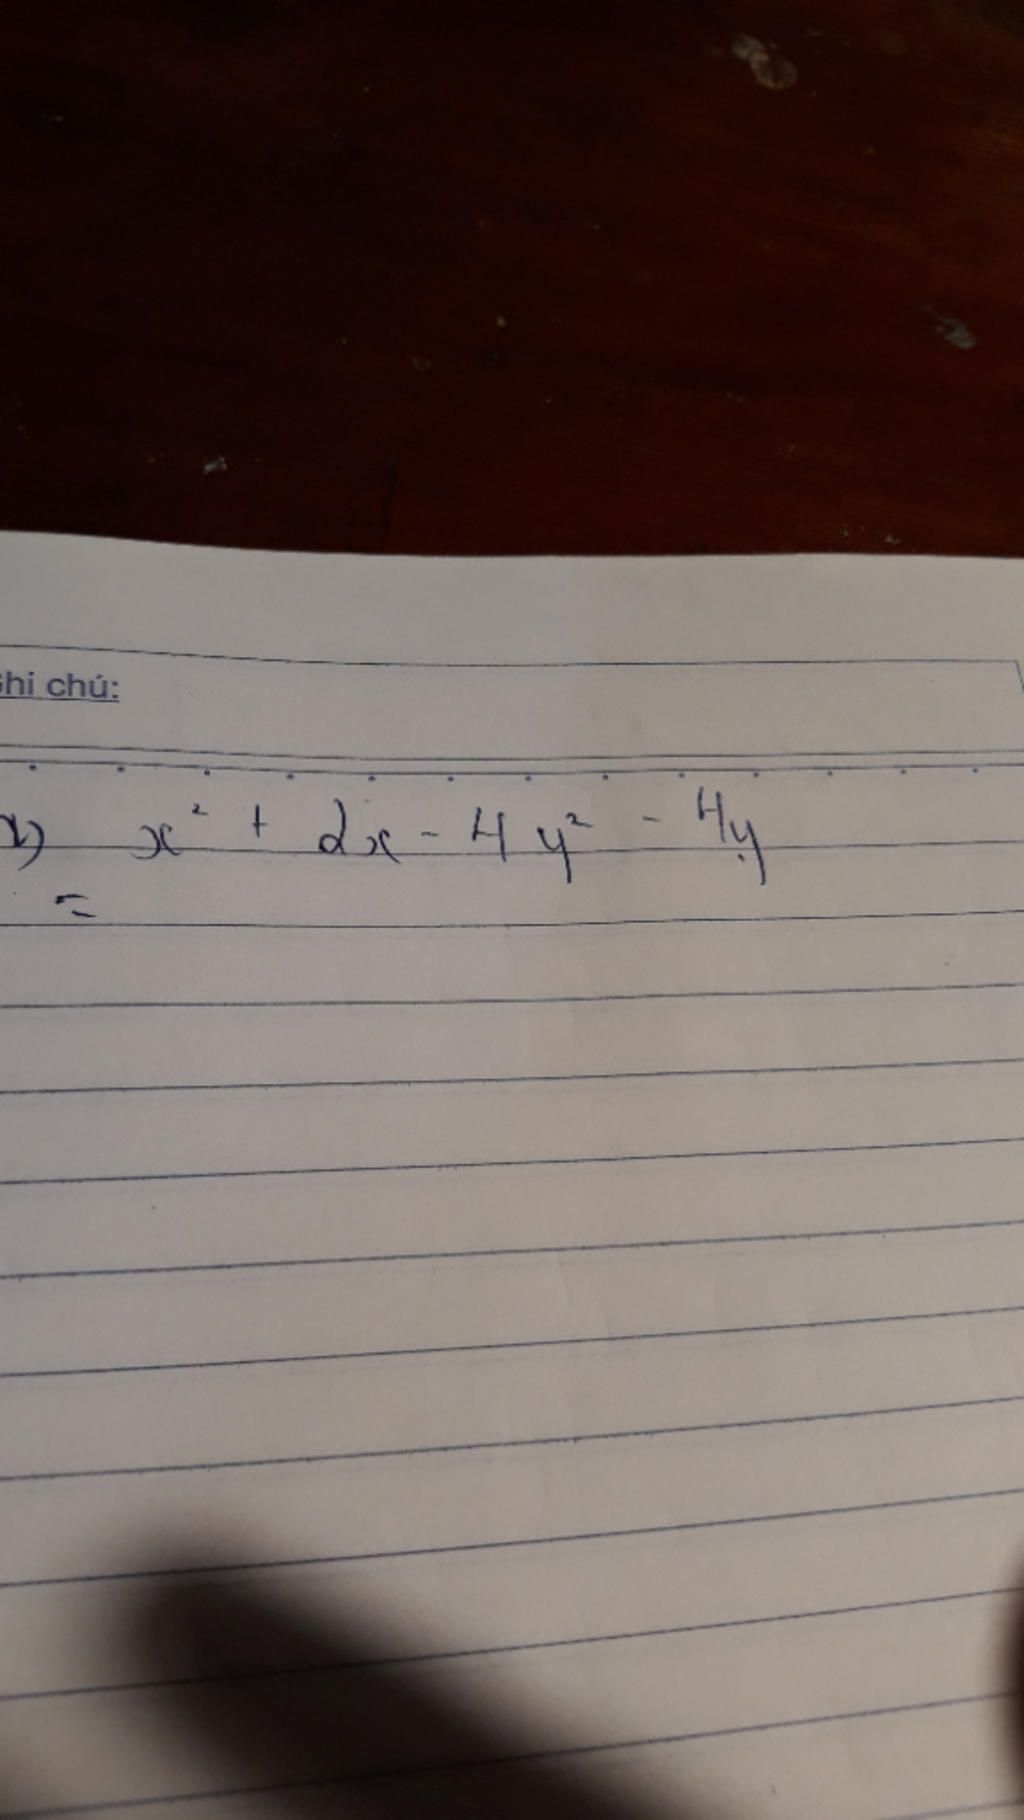 chú:
x² + 2x - 4y² - 4y
=